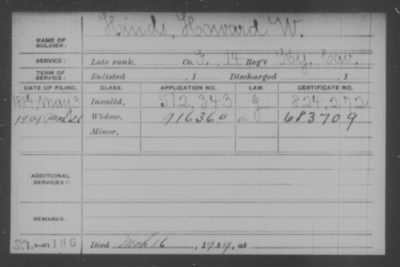 Hinds, Howard W.
NAME OF SOLDIER:
SERVICE: Late rank, Co. F, 14 Reg't Ky. Cav.
TERM OF SERVICE: Enlisted , 1 Discharged , 1
DATE OF FILING. CLASS. APPLICATION NO. LAW. CERTIFICATE NO.
May 3 Invalid, 512,343 824,272
1904 Widow, 916360 683709
Minor,
ADDITIONAL SERVICES:
REMARKS:
Died Mch 16, 1904, at